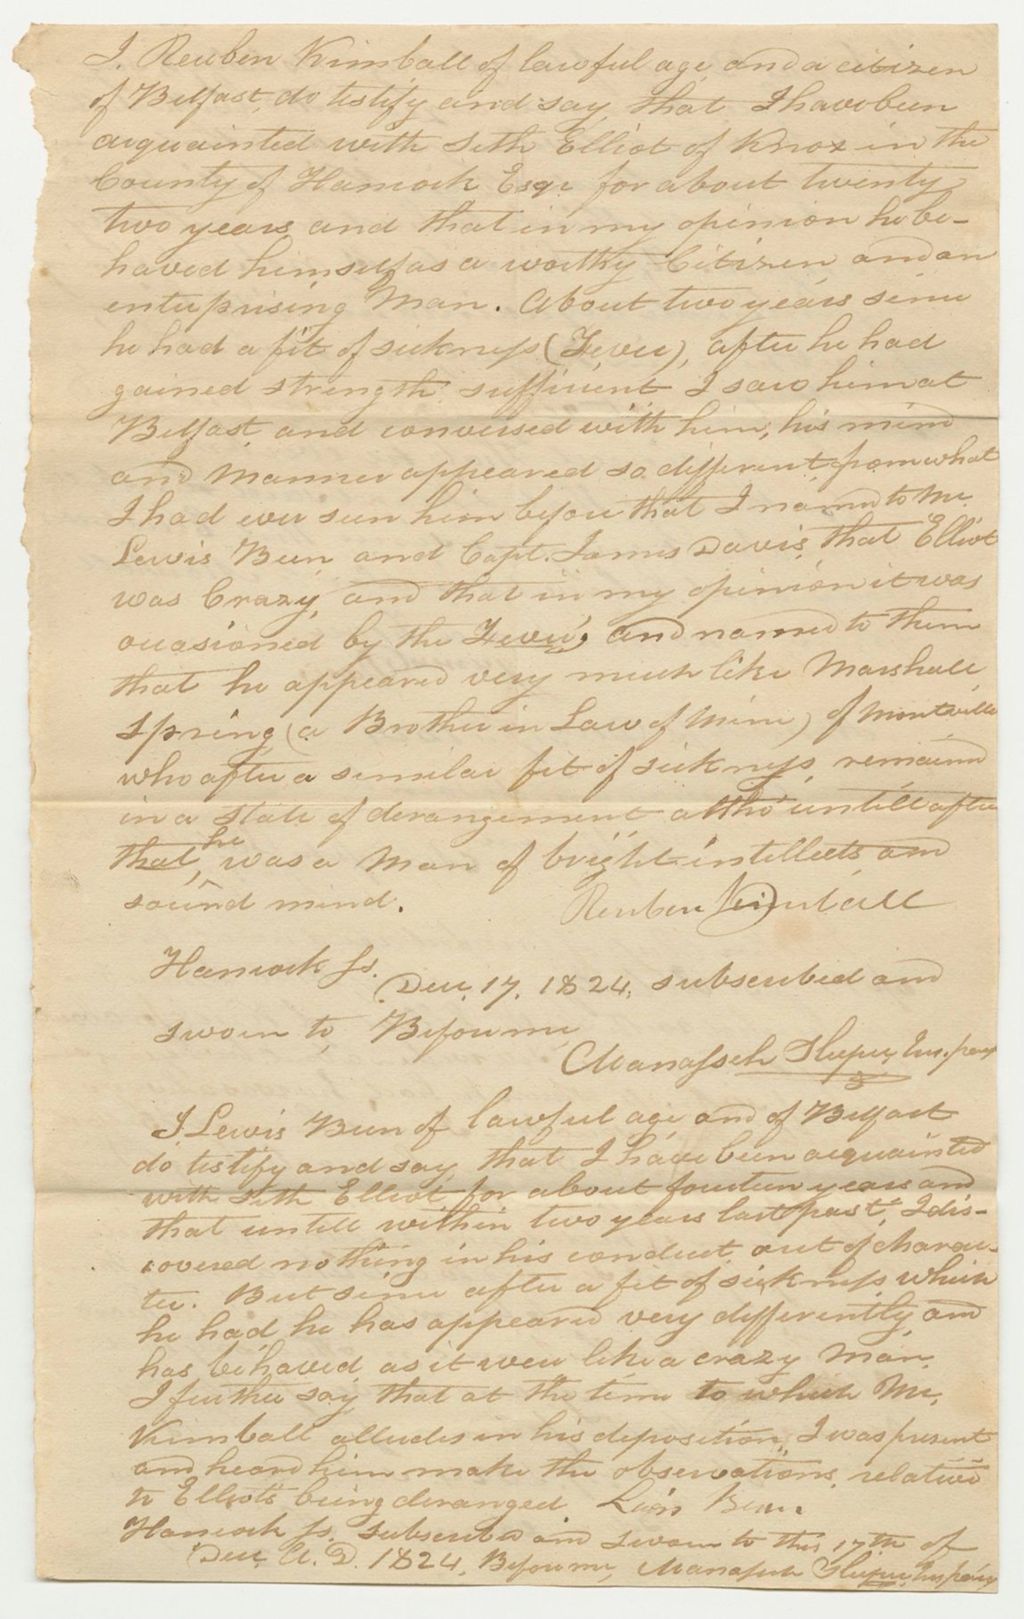 I. Reuben Kimball of lawful age and a citizen
of Belfast, do testify and say, that I have been
acquainted with Seth Elliot of Knox in the
County of Hancock Esqr for about twenty
two years and that in my opinion he be-
haved himself as a worthy Citizen and an
enterprising Man. About two years since
he had a fit of sickness (Fever), after he had
gained strength sufficient I saw him at
Belfast, and conversed with him, his mind
and Manner appeared so different from what
I had ever seen him before that I named to Mr.
Lewis Bean and Capt. James Davis, that Elliot
was Crazy, and that in my opinion it was
occasioned by the Fever, and named to them
that he appeared very much like Marshall
Spring (a Brother in Law of mine) of Montville
who after a similar fit of sickness, remained
in a state of derangement altho' untill after
that, he was a Man of bright intellects and
sound mind.
Reuben Kimball
Hancock Ss.
Dec. 17, 1824, subscribed and
sworn to, Before me,
Manasseh Sleeper, Jus. peace
I, Lewis Bean of lawful age and of Belfast
do testify and say, that I have been acquainted
with Seth Elliot for about fourteen years and
that untill within two years last past, I dis-
covered nothing in his conduct out of charac-
ter. But since after a fit of sickness which
he had, he has appeared very differently and
has behaved, as it were like a crazy Man.
I further say that at the time to which Mr.
Kimball alludes in his deposition, I was present
and heard him make the observations relative
to Elliot's being deranged. Lewis Bean
Hancock Ss. Subscribed and sworn to this 17th of
Dec. A.D. 1824, Before me, Manasseh Sleeper, Jus peace